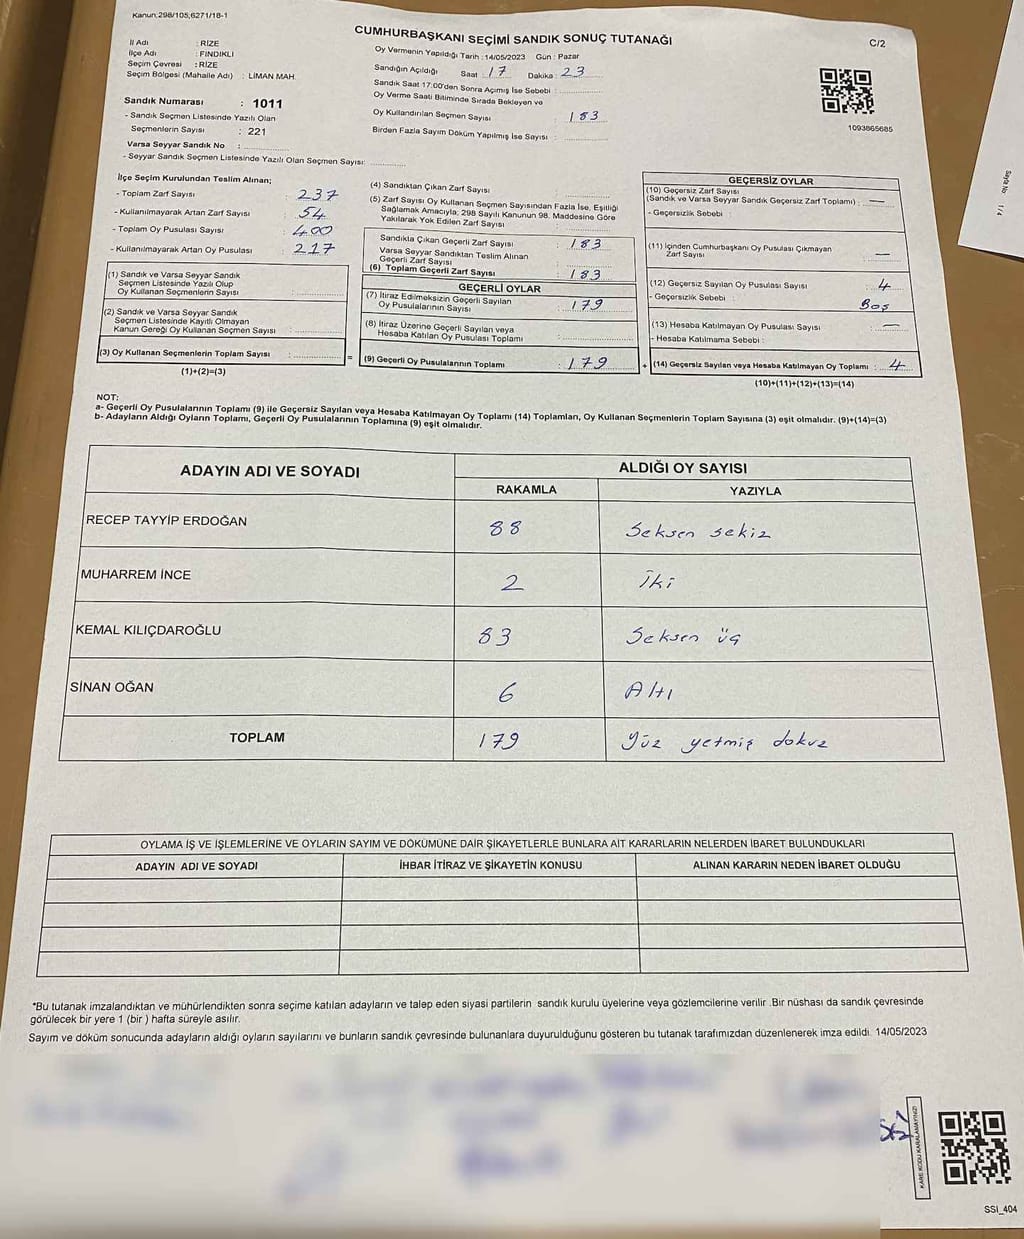 Kanun:298/105,6271/18-1
CUMHURBAŞKANI SEÇİMİ SANDIK SONUÇ TUTANAĞI
C/2
İl Adı : RİZE
İlçe Adı : FINDIKLI
Seçim Çevresi : RİZE
Seçim Bölgesi (Mahalle Adı) : LİMAN MAH.
Sandık Numarası : 1011
- Sandık Seçmen Listesinde Yazılı Olan
Seçmenlerin Sayısı : 221
Varsa Seyyar Sandık No :
- Seyyar Sandık Seçmen Listesinde Yazılı Olan Seçmen Sayısı:
Oy Vermenin Yapıldığı Tarih : 14/05/2023 Gün : Pazar
Sandığın Açıldığı Saat : 17 Dakika : 23
Sandık Saat 17:00'den Sonra Açımış İse Sebebi :
Oy Verme Saati Bitiminde Sırada Bekleyen ve
Oy Kullandırılan Seçmen Sayısı : 183
Birden Fazla Sayım Döküm Yapılmış İse Sayısı :
1093865685
Sayfa No : 1/4
İlçe Seçim Kurulundan Teslim Alınan;
- Toplam Zarf Sayısı : 237
- Kullanılmayarak Artan Zarf Sayısı : 54
- Toplam Oy Pusulası Sayısı : 400
- Kullanılmayarak Artan Oy Pusulası : 217
(1) Sandık ve Varsa Seyyar Sandık
Seçmen Listesinde Yazılı Olup
Oy Kullanan Seçmenlerin Sayısı :
(2) Sandık ve Varsa Seyyar Sandık
Seçmen Listesinde Kayıtlı Olmayan
Kanun Gereği Oy Kullanan Seçmen Sayısı :
(3) Oy Kullanan Seçmenlerin Toplam Sayısı : =
(1)+(2)=(3)
(4) Sandıktan Çıkan Zarf Sayısı :
(5) Zarf Sayısı Oy Kullanan Seçmen Sayısından Fazla İse, Eşitliği
Sağlamak Amacıyla, 298 Sayılı Kanunun 98. Maddesine Göre
Yakılarak Yok Edilen Zarf Sayısı :
Sandıkta Çıkan Geçerli Zarf Sayısı : 183
Varsa Seyyar Sandıktan Teslim Alınan
Geçerli Zarf Sayısı :
(6) Toplam Geçerli Zarf Sayısı : 183
GEÇERLİ OYLAR
(7) İtiraz Edilmeksizin Geçerli Sayılan
Oy Pusulalarının Sayısı : 179
(8) İtiraz Üzerine Geçerli Sayılan veya
Hesaba Katılan Oy Pusulası Toplamı :
(9) Geçerli Oy Pusulalarının Toplamı : 179 +
GEÇERSİZ OYLAR
(10) Geçersiz Zarf Sayısı
(Sandık ve Varsa Seyyar Sandık Geçersiz Zarf Toplamı) : —
- Geçersizlik Sebebi :
(11) İçinden Cumhurbaşkanı Oy Pusulası Çıkmayan
Zarf Sayısı : —
(12) Geçersiz Sayılan Oy Pusulası Sayısı : 4
- Geçersizlik Sebebi : Boş
(13) Hesaba Katılmayan Oy Pusulası Sayısı : —
- Hesaba Katılmama Sebebi :
(14) Geçersiz Sayılan veya Hesaba Katılmayan Oy Toplamı : 4
(10)+(11)+(12)+(13)=(14)
NOT:
a- Geçerli Oy Pusulalarının Toplamı (9) ile Geçersiz Sayılan veya Hesaba Katılmayan Oy Toplamı (14) Toplamları, Oy Kullanan Seçmenlerin Toplam Sayısına (3) eşit olmalıdır. (9)+(14)=(3)
b- Adayların Aldığı Oyların Toplamı, Geçerli Oy Pusulalarının Toplamına (9) eşit olmalıdır.
ADAYIN ADI VE SOYADI ALDIĞI OY SAYISI
RAKAMLA YAZIYLA
RECEP TAYYİP ERDOĞAN 88 Seksen sekiz
MUHARREM İNCE 2 İki
KEMAL KILIÇDAROĞLU 83 Seksen üç
SİNAN OĞAN 6 Altı
TOPLAM 179 Yüz yetmiş dokuz
OYLAMA İŞ VE İŞLEMLERİNE VE OYLARIN SAYIM VE DÖKÜMÜNE DAİR ŞİKAYETLERLE BUNLARA AİT KARARLARIN NELERDEN İBARET BULUNDUKLARI
ADAYIN ADI VE SOYADI İHBAR İTİRAZ VE ŞİKAYETİN KONUSU ALINAN KARARIN NEDEN İBARET OLDUĞU
*Bu tutanak imzalandıktan ve mühürlendikten sonra seçime katılan adayların ve talep eden siyasi partilerin sandık kurulu üyelerine veya gözlemcilerine verilir .Bir nüshası da sandık çevresinde
görülecek bir yere 1 (bir ) hafta süreyle asılır.
Sayım ve döküm sonucunda adayların aldığı oyların sayılarını ve bunların sandık çevresinde bulunanlara duyurulduğunu gösteren bu tutanak tarafımızdan düzenlenerek imza edildi. 14/05/2023
KARE KODU KARALAMAYINIZ!
SSI_404